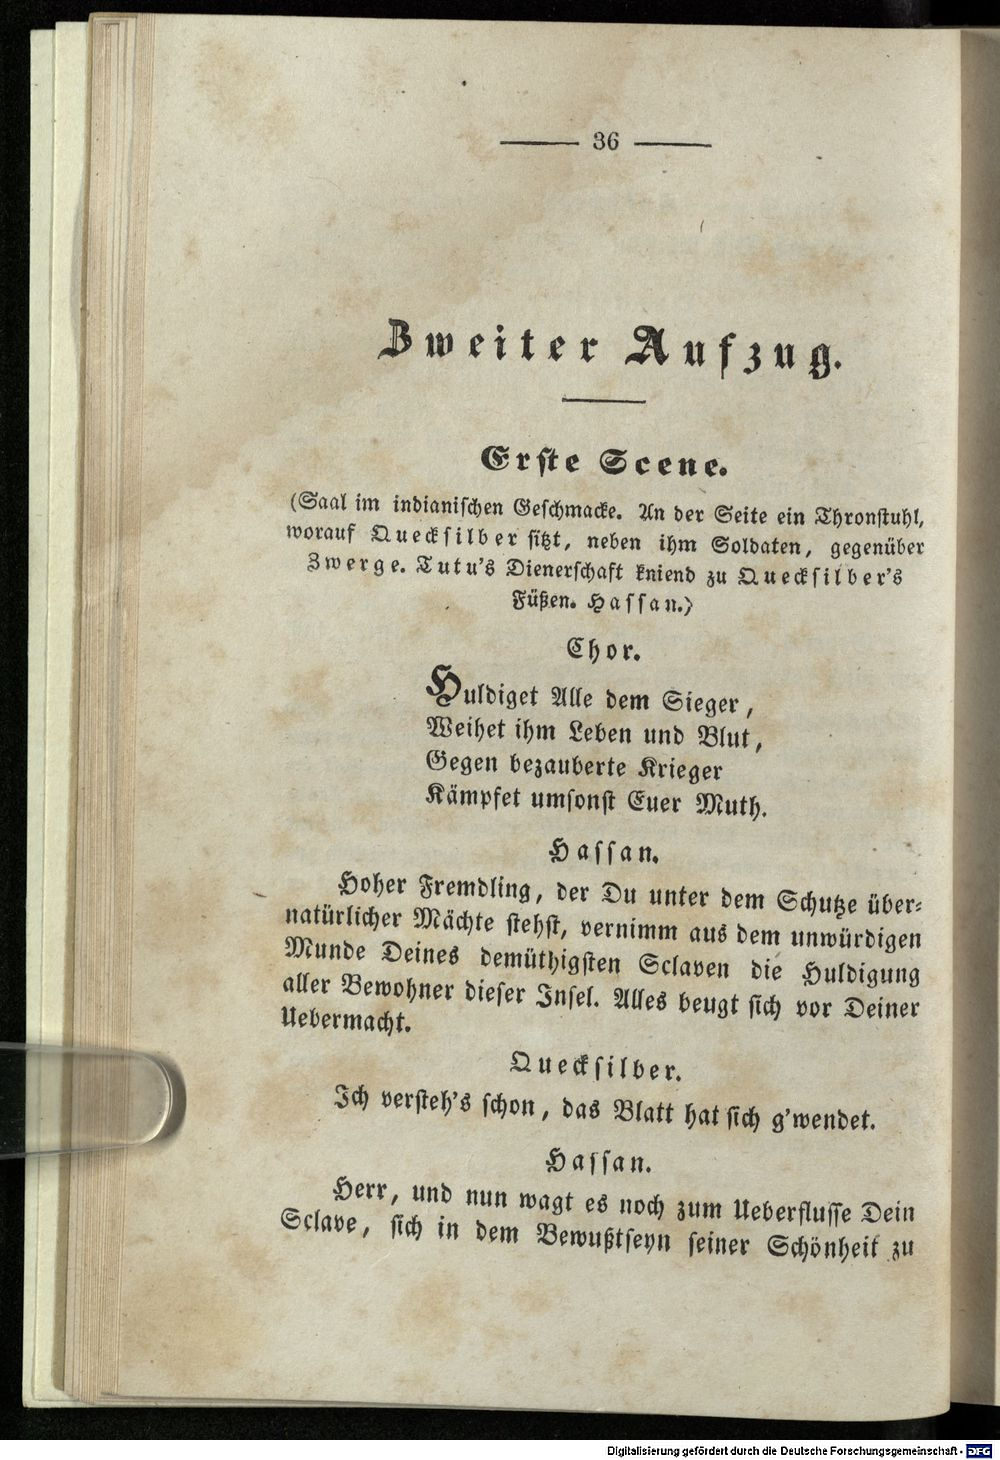 36
Zweiter Aufzug.
Erste Scene.
(Saal im indianischen Geschmacke. An der Seite ein Thronstuhl,
worauf Quecksilber sitzt, neben ihm Soldaten, gegenüber
Zwerge. Tutu's Dienerschaft kniend zu Quecksilber's
Füßen. Hassan.)
Chor.
Huldiget Alle dem Sieger,
Weihet ihm Leben und Blut,
Gegen bezauberte Krieger
Kämpfet umsonst Euer Muth.
Hassan.
Hoher Fremdling, der Du unter dem Schutze über-
natürlicher Mächte stehst, vernimm aus dem unwürdigen
Munde Deines demüthigsten Sclaven die Huldigung
aller Bewohner dieser Insel. Alles beugt sich vor Deiner
Uebermacht.
Quecksilber.
Ich versteh's schon, das Blatt hat sich g'wendet.
Hassan.
Herr, und nun wagt es noch zum Ueberflusse Dein
Sclave, sich in dem Bewußtseyn seiner Schönheit zu
Digitalisierung gefördert durch die Deutsche Forschungsgemeinschaft - DFG